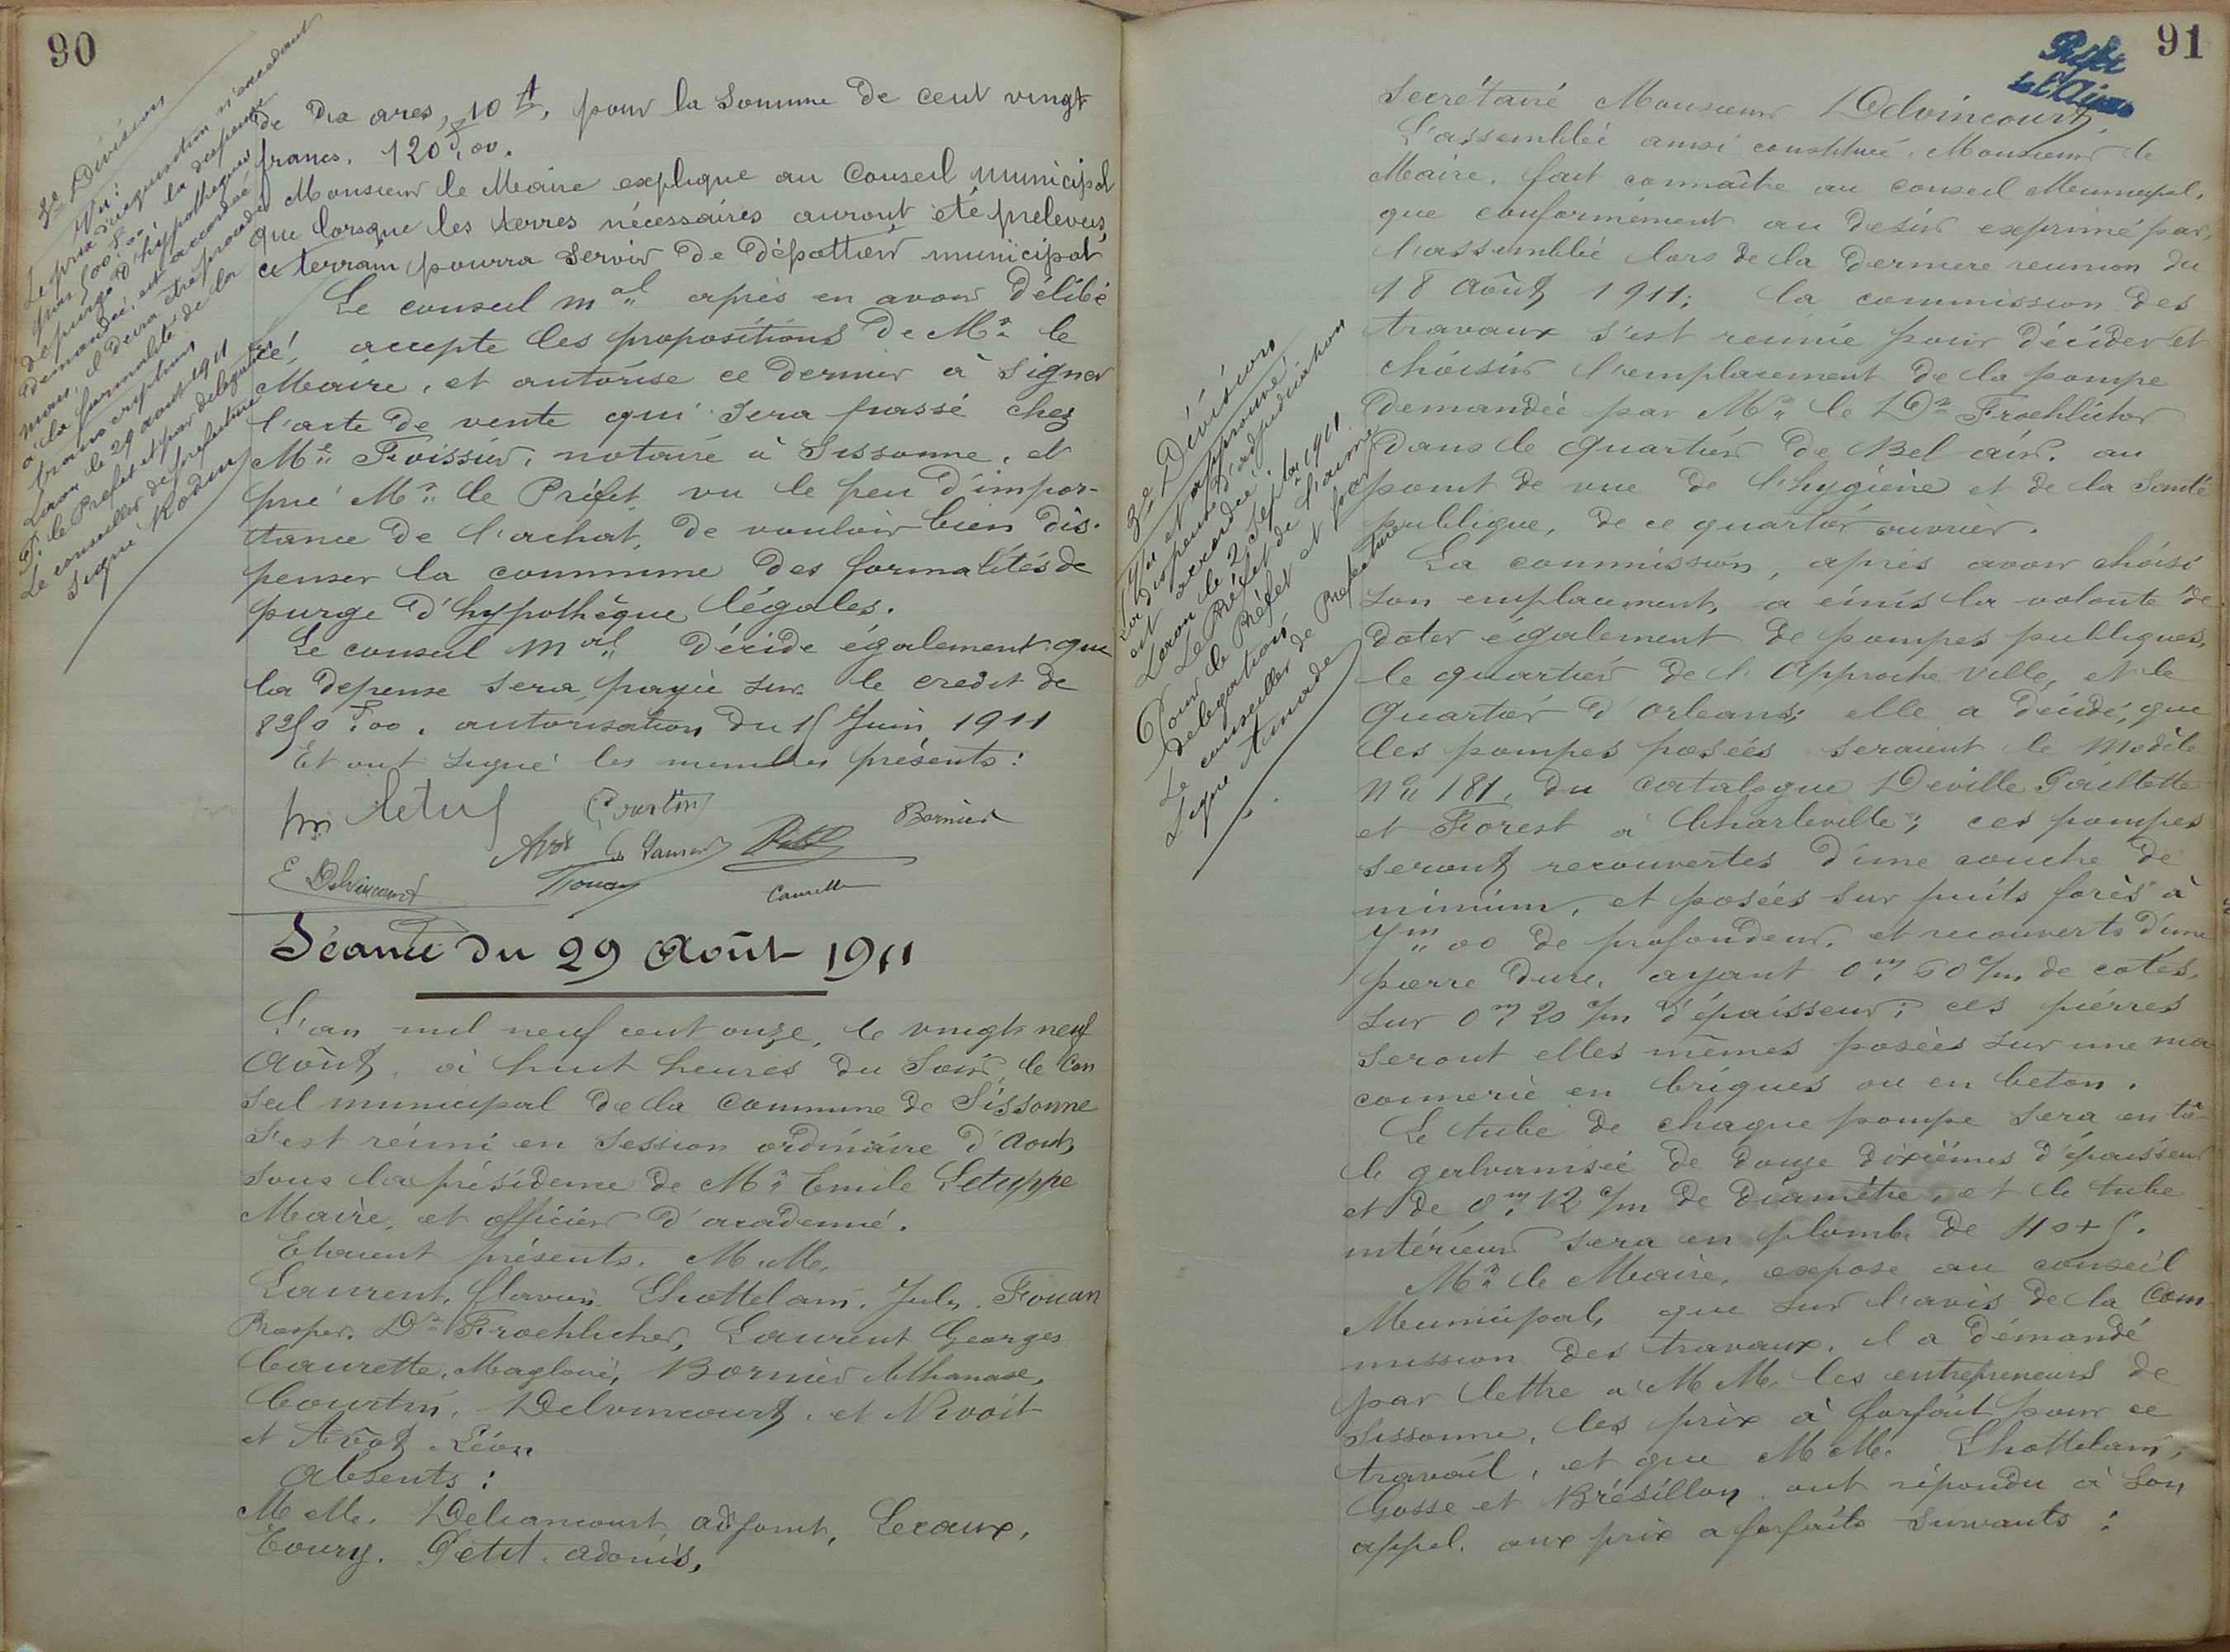 90
3e Division
Vu:
Le prix d'acquisition n'excédant
pas 500f.00, la dispense
de purge d'hypothèques
demandée, est accordée
mais, il devra être procédé
à la formalité de la
transcription
Laon le 29 aout 1911
P. le Préfet et par délégation
Le conseiller de préfecture
Signé Rodin
de dix ares, 10 A, pour la somme de cent vingt
francs. 120f.00.
Monsieur le Maire explique au Conseil municipal
que lorsque les terres nécessaires auront été prelevées,
ce terrain pourra servir de dépottoir municipal
Le conseil mal après en avoir délibé
ré, accepte les propositions de Mr le
Maire, et autorise ce dernier à signer
l'acte de vente qui sera passé chez
Me Froissier, notaire à Sissonne, et
prie Mr le Préfet vu le peu d'impor-
tance de l'achat, de vouloir bien dis-
penser la commune des formalités de
purge d'hypothèque légales.
Le conseil mal décide également que
la depense sera payée sur le credit de
8250f.00. autorisation du 15 Juin 1911
Et ont signé les membres présents:
Courtin
Bornier
Avot G. Laurent Petit
E Delvincourt
Fouan
Caurette
Séance du 29 Août 1911
L'an mil neuf cent onze, le vingt neuf
Août, à huit heures du Soir, le Con
seil municipal de la Commune de Sissonne
s'est réuni en session ordinaire d'Aout,
sous la présidence de Mr Emile Letuppe
Maire, et officier d'académie.
Etaient présents. M.M.
Laurent, flavien Lhottelain. Jules. Fouan
Prosper. Dr Froehlicher, Laurent Georges
Caurette, Magloire, Bornier Athanase,
Courtin, Delvincourt, et Nivoit
et Avot Léon
Absents:
M M. Deliancourt adjoint, Lecaux,
Toury. Petit adonis,
91
Préfet
de l'Aisne
3e Division
Vu et approuvé
La dispense d'adjudication
est accordée.
Laon le 2 Septbre 1911
Le Préfet de l'aisne
Pour le Préfet et par
délégation
Le conseiller de Préfecture
Signé
Secrétaire Monsieur Delvincourt,
L'assemblée ainsi constituée. Monsieur le
Maire, fait connaître au conseil Municipal,
que conformément au desir exprimé par
l'assemblée lors de la dernière reunion du
18 Août 1911; la commission des
travaux s'est reunie pour décider et
choisir l'emplacement de la pompe
demandée par Mr le Dr Froehlicher
dans le quartier de Bel air. au
point de vue de l'hygiène et de la santé
publique, de ce quartier ouvrier.
La commission, après avoir choisi
son emplacement, a émis la volonté de
doter également de pompes publiques,
le quartier de l'Approche ville, et le
quartier d'orleans; elle a décidé, que
les pompes posées seraient le Modèle
No 181, du catalogue Deville Paillette
et Forest à Charleville; ces pompes
seront recouvertes d'une couche de
minium, et posées sur puits forés à
7m00 de profondeur, et recouverts d'une
pierre dure, ayant 0m,60 c/m de cotés,
sur 0m,20 c/m d'épaisseur; ces pierres
seront elles mêmes posées sur une ma
connerie en briques ou en beton.
Le tube de chaque pompe sera en tô
le galvanisée de douze dixièmes d'épaisseur
et de 0m,12 c/m de diamétre, et le tube
intérieur sera en plomb de 40+5.
Mr le Maire, expose au conseil
Municipal, que sur l'avis de la Com
mission des travaux, il a démandé
par lettre à M M. les entrepreneurs de
Sissonne, les prix à forfait pour ce
travail, et que M M. Lhottelain,
Gosse et Brésillon ont répondu à son
appel. aux prix a forfaits suivants: